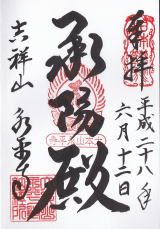 奉拝
平成二十八年
六月十二日
承陽殿
大本山永平寺
吉祥山
永平寺